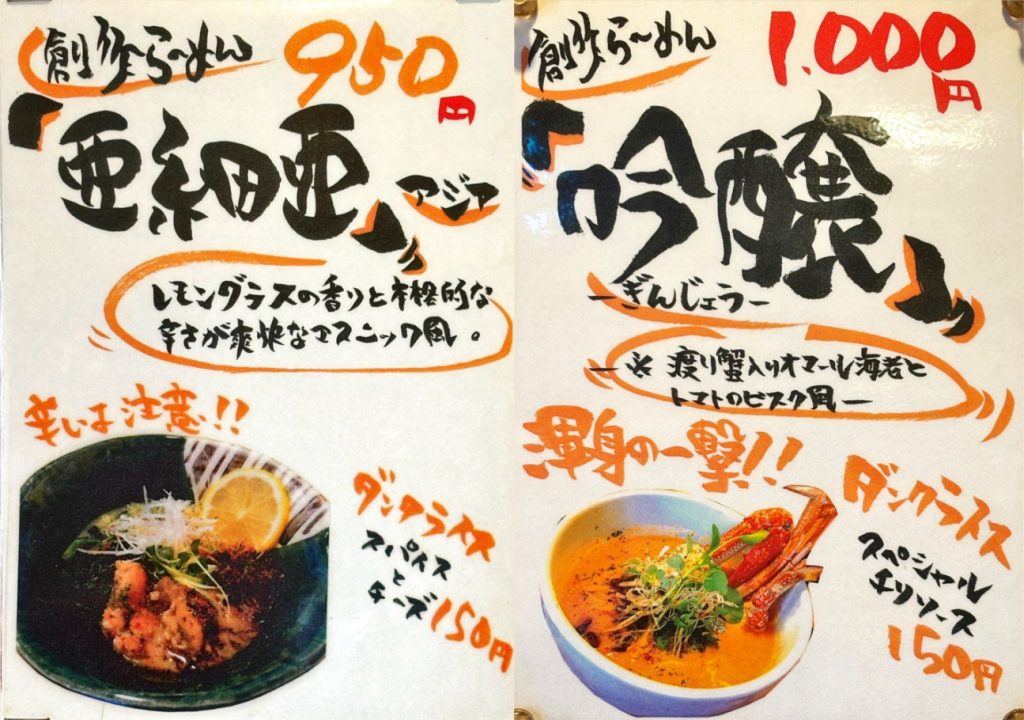 創作らーめん 950円
「亜細亜」
アジア
レモングラスの香りと本格的な
辛さが爽快なエスニック風。
辛いは注意!!
ダンクライス
スパイス
と
チーズ 150円
創作らーめん 1,000円
「吟醸」
ーぎんじょうー
ー※渡り蟹入りオマール海老と
トマトのビスク風ー
渾身の一撃!!
ダンクライス
スペシャル
チリソース
150円